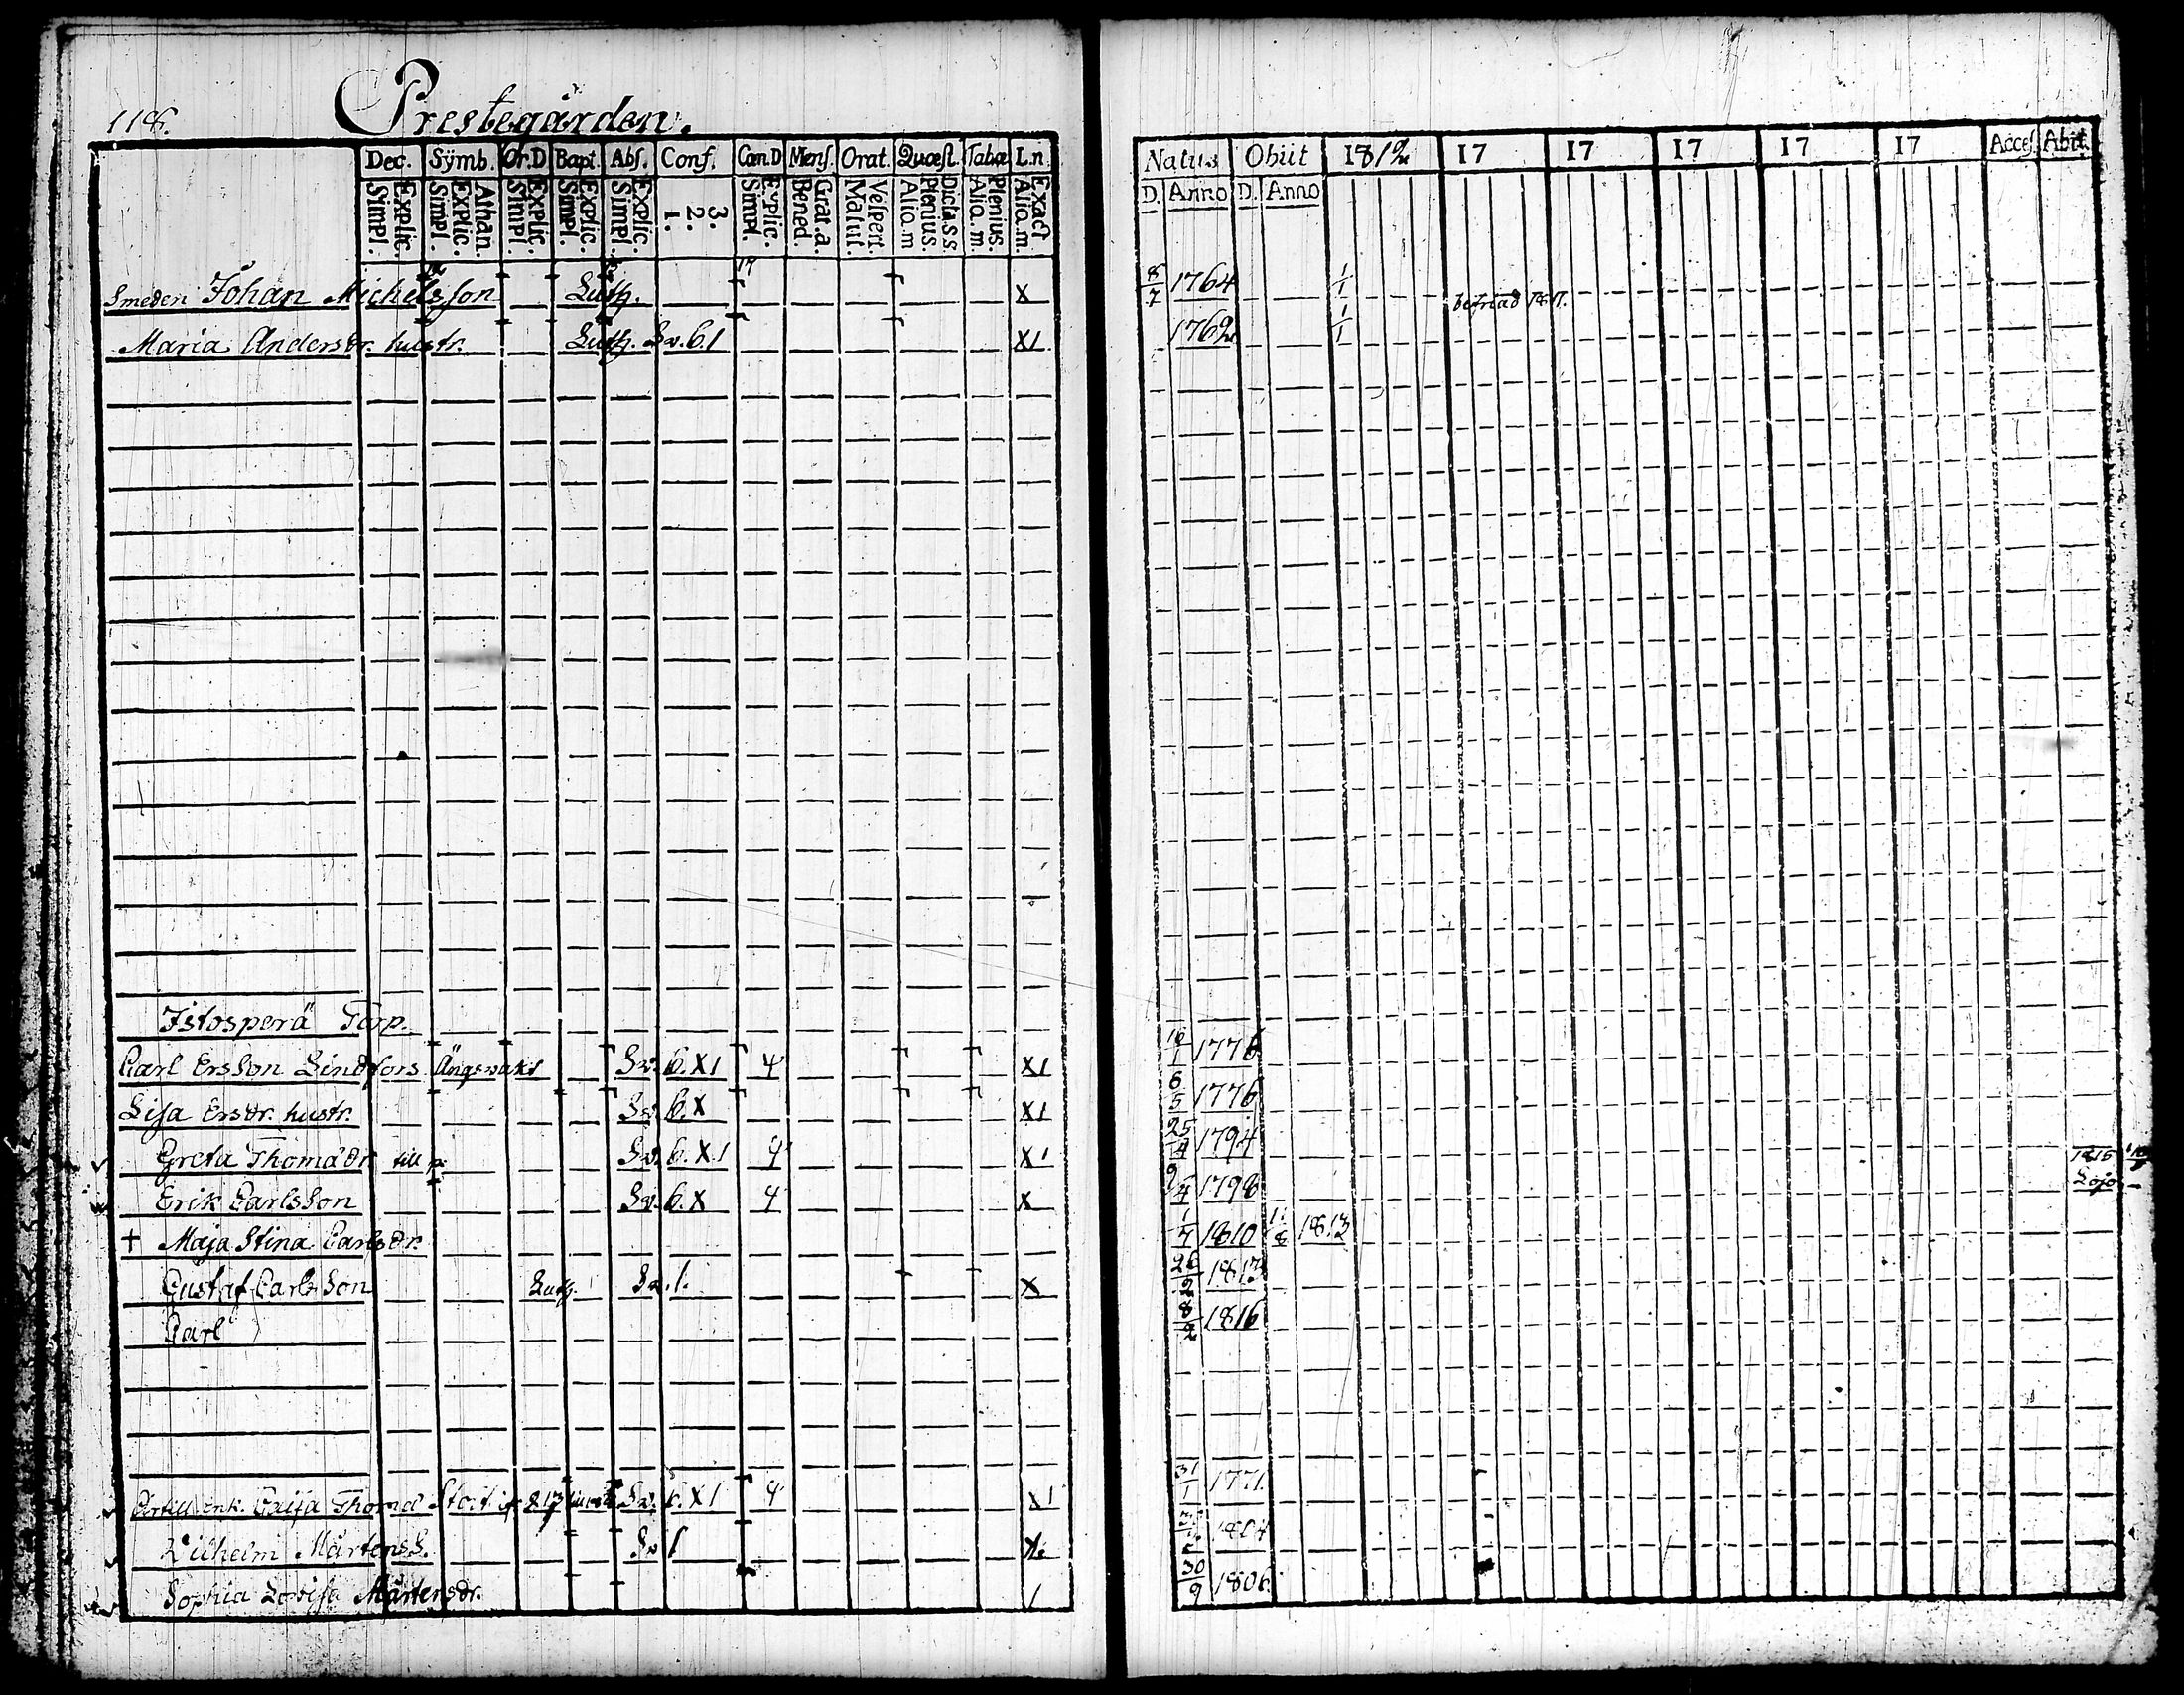 118.
Prestegården.
Dec. Sÿmb. Or.D Bapt. Abſ. Conf. Cœn.D Menſ. Orat. Quœſt. Tabœ L.n.
Explic. Simpl. Athan. Explic. Simpl. Explic. Simpl. Explic. Simpl. Explic. Simpl. 3. 2. 1. Explic. Simpl. Grat.a. Bened. Veſpert. Matut. Dicta.s.s. Plenius. Aliq.m Plenius. Aliq.m Exact Aliq.m.
Natus Obiit 1812 17 17 17 17 17 Acceſ. Abit.
D. Anno D. Anno
Smeden Johan Michelsson Luth. X 8/7 1764 1/1 befriad 1817.
Maria Andersdr. hustr. Luth. Sv. b.1 X1 1762 1/1
Istosperä Torp.
Carl Ersson Lindfors Ängsvakt Sv. b.X1 4 X1 16/1 1776
Lisa Ersdr. hustr. Sv. b.X X1 6/5 1776
Greta Thomädr till p. Sv. b.X1 4 X1 25/4 1794 1815
Erik Carlsson Sv. b.X 4 X 9/4 1798 Lojo
+ Maja Stina Carlsdr. 1/7 1810 11/8 1813
Gustaf Carlsson Luth. Sv. 1. X 26/9 1813
Carl 8/2 1816
enk. Caisa Thomä Sv. b.X1 4 X1 31/1 1771.
Wilhelm Mårtenss. Sv 1 X. 1804
Sophia Lovisa Mårtensdr. 1 30/9 1806.